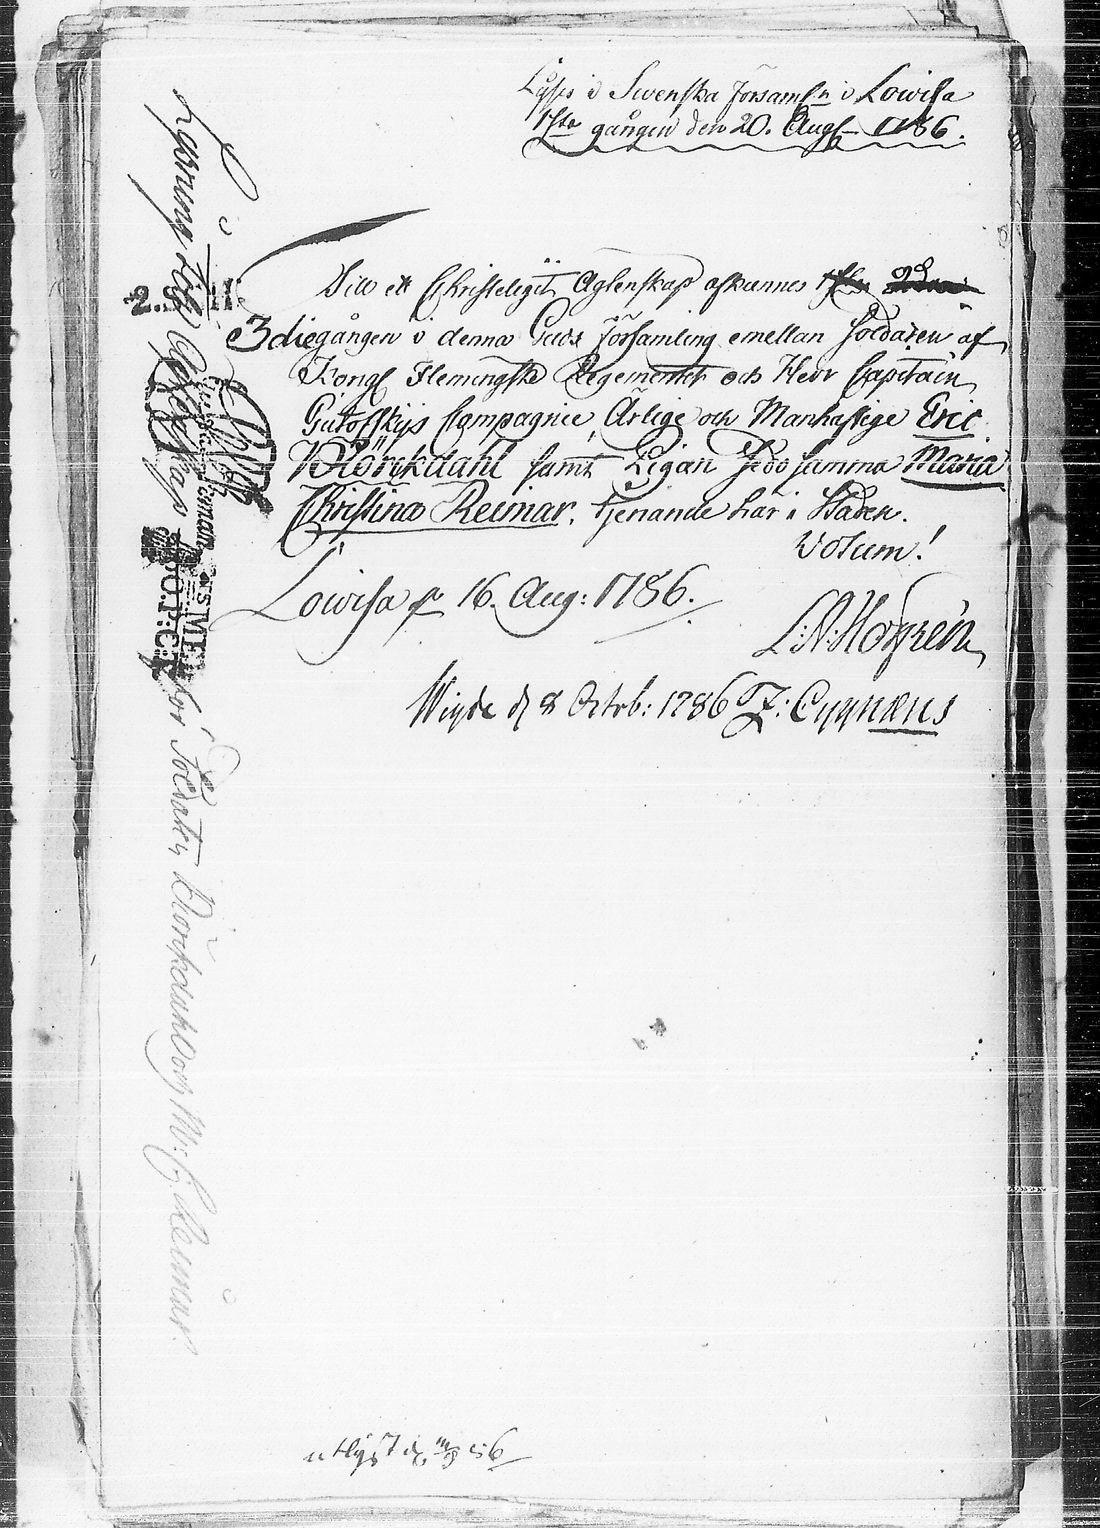 Lyses i Swenska Församl:n i Lowisa
1sta gången den 20. Aug: 1786.
Till ett Christeligit Äglenskap afkunnes 1sta 2dra
3die gången i denna Guds Församling emellan Soldaten af
Kongl Flemingska Regementet och Herr Capitain
Gutofskys Compagnie, Ärlige och Manhaftige Eric
Nörckdahl samt Pigan Gudosamma Maria
Christina Reimar, tjenande här i Staden.
Votum!
Lowisa d. 16. Aug: 1786.
Wigde d. 8 Octob: 1786 Z: Cygnæus
Lysning till Ägtenskap för Soldaten och M: C: Reimar
utlyst d.